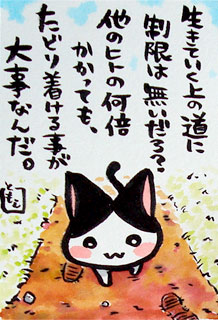 生きていく上の道に
制限は無いだろ？
他のヒトの何倍
かかっても、
たどり着ける事が
大事なんだ。
ともえ